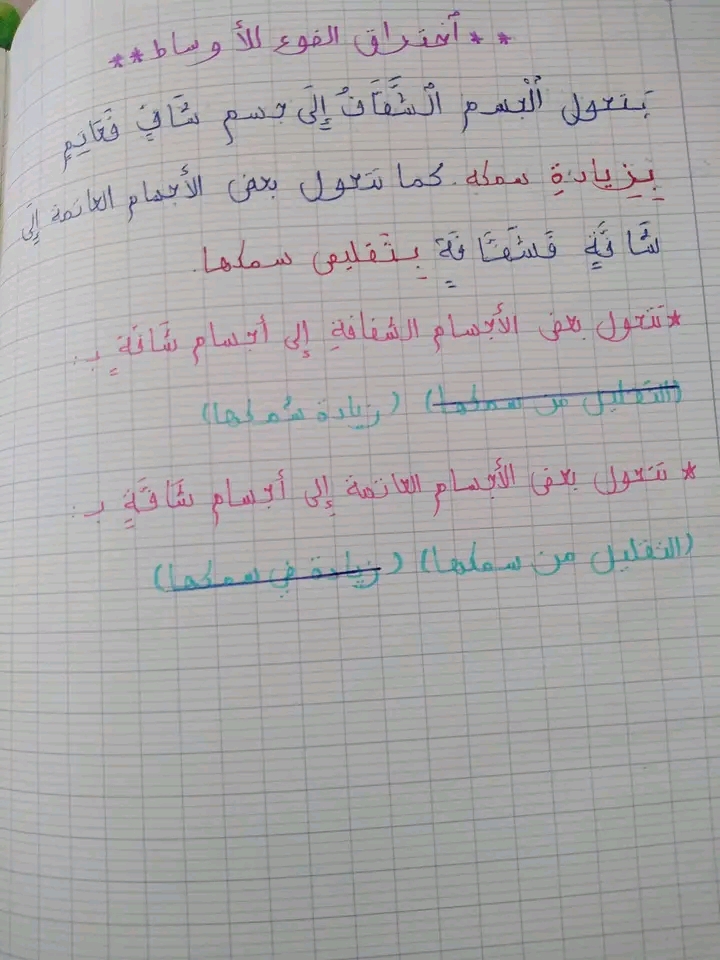 ** اختراق الضوء للأوساط **
يتحول الْجسم الْشَّفَّافُ إِلَى جسم شَافٍّ فَعَاتِمٍ
بِزيادةِ سمكه. كما تتحول بعض الأجسام العاتمة إِلَى
شَافَّةٍ فَشَفَّافَةٍ بِتَقليص سمكها.
* تتحول بعض الأجسام الشفافة إلى أجسام شَافَّةٍ بـ:
(التقليل من سمكها) (زيادة سُمكها)
* تتحول بعض الأجسام العاتمة إلى أجسام شَافَّةٍ بـ:
(التقليل من سمكها) (زيادة في سمكها)